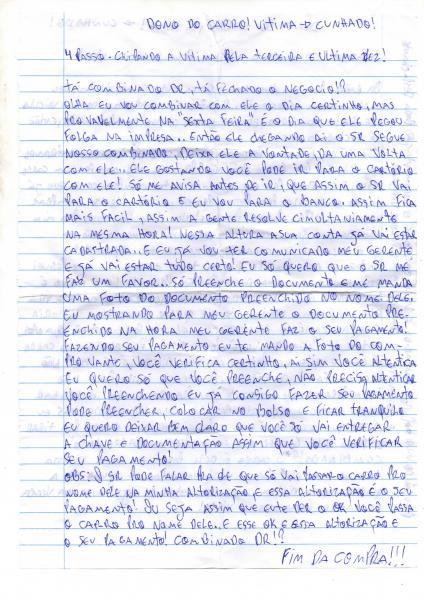 DONO DO CARRO! VITIMA → CUNHADO!
4 PASSO - CHIPANDO A VITIMA PELA TERCEIRA E ULTIMA VEZ!
TÁ COMBINADO DR, TÁ FECHADO O NEGOCIO!?
OLHA EU VOU COMBINAR COM ELE O DIA CERTINHO, MAS
PROVAVELMENTE NA "SEXTA FEIRA" É O DIA QUE ELE PEGOU
FOLGA NA IMPRESA.. ENTÃO ELE CHEGANDO AI O SR SEGUE
NOSSO COMBINADO, DEIXA ELE A VONTADE, DA UMA VOLTA
COM ELE.. ELE GOSTANDO VOCÊ PODE IR PARA O CARTÓRIO
COM ELE! SÓ ME AVISA ANTES DE IR, QUE ASSIM O SR VAI
PARA O CARTÓRIO E EU VOU PARA O BANCO. ASSIM FICA
MAIS FACIL, ASSIM A GENTE RESOLVE CIMULTANIAMENTE
NA MESMA HORA! NESSA ALTURA ASUA CONTA JÁ VAI ESTAR
CADASTRADA.. E EU JÁ VOU TER COMUNICADO MEU GERENTE
E JÁ VAI ESTAR TUDO CERTO! EU SÓ QUERO QUE O SR ME
FAZ UM FAVOR.. SÓ PREENCHE O DOCUMENTO E ME MANDA
UMA FOTO DO DOCUMENTO PREENCHIDO NO NOME DELE.
EU MOSTRANDO PARA MEU GERENTE O DOCUMENTO PRE-
ENCHIDO NA HORA MEU GERENTE FAZ O SEU PAGAMENTO!
FAZENDO SEU PAGAMENTO EU TE MANDO A FOTO DO COM-
PROVANTE, VOCÊ VERIFICA CERTINHO, AI SIM VOCÊ ALTENTICA
EU QUERO SÓ QUE VOCÊ PREENCHE, NÃO PRECISA ALTENTICAR
VOCÊ PREENCHENDO EU JÁ CONSIGO FAZER SEU PAGAMENTO
PODE PREENCHER, COLOCAR NO BOLSO E FICAR TRANQUILO
EU QUERO DEIXAR BEM CLARO QUE VOCÊ SÓ VAI ENTREGAR
A CHAVE E DOCUMENTAÇÃO ASSIM QUE VOCÊ VERIFICAR
SEU PAGAMENTO!
OBS: O SR PODE FALAR PRA ELE QUE SÓ VAI PASSAR O CARRO PRO
NOME DELE NA MINHA ALTORIZAÇÃO, E ESSA ALTORIZAÇÃO É O SEU
PAGAMENTO! OU SEJA ASSIM QUE EU TE DER O OK VOCÊ PASSA
O CARRO PRO NOME DELE.. E ESSE OK É ESSA ALTORIZAÇÃO E
O SEU PAGAMENTO! COMBINADO DR!?
FIM DA COMPRA!!!